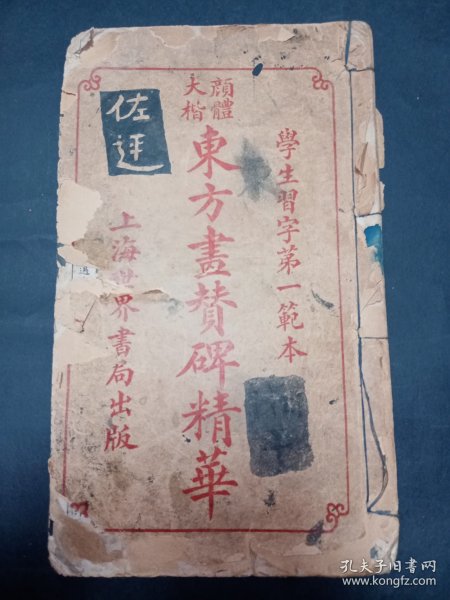 學生習字第一範本
顔體
大楷
東方畫賛碑精華
上海世界書局出版
佐
过
孔夫子旧书网
www.kongfz.com